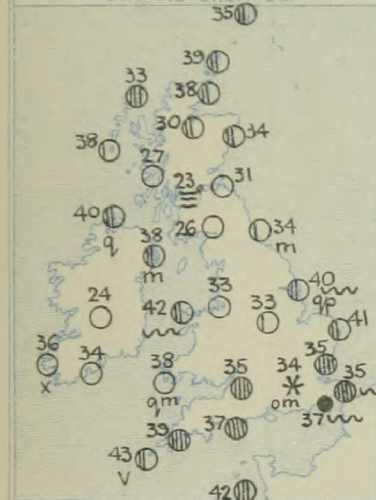 35
39
33
38
30
34
38
27
23
31
40
q
26
34
m
38
m
24
42
33
33
40
qp
41
36
x
34
38
qm
35
34
om
35
35
39
37
37
43
v
42